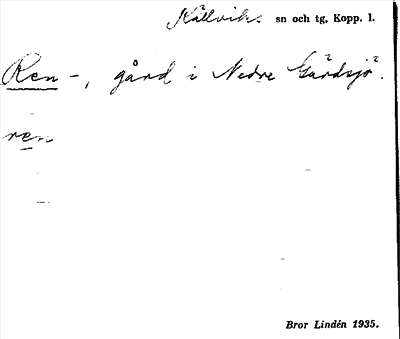 Rättviks sn och tg, Kopp. l.
Ren-, gård i Nedre Gärdsjö.
ren
Bror Lindén 1935.